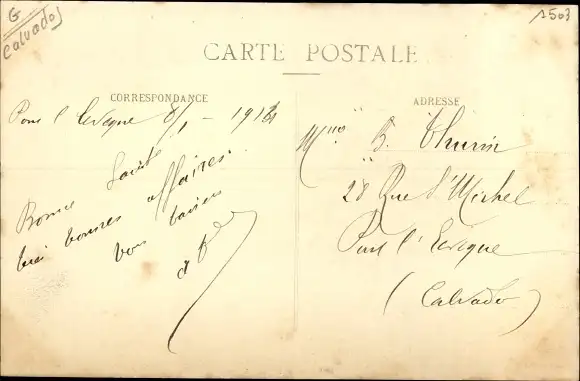 G
Calvados
1503
CARTE POSTALE
CORRESPONDANCE
ADRESSE
Pont l'Eveque 8/1 - 191
Bonne Santé
bonnes affaires.
bons baisers
B. Thurin
28 Rue St Michel
Pont l'Eveque
(Calvados)